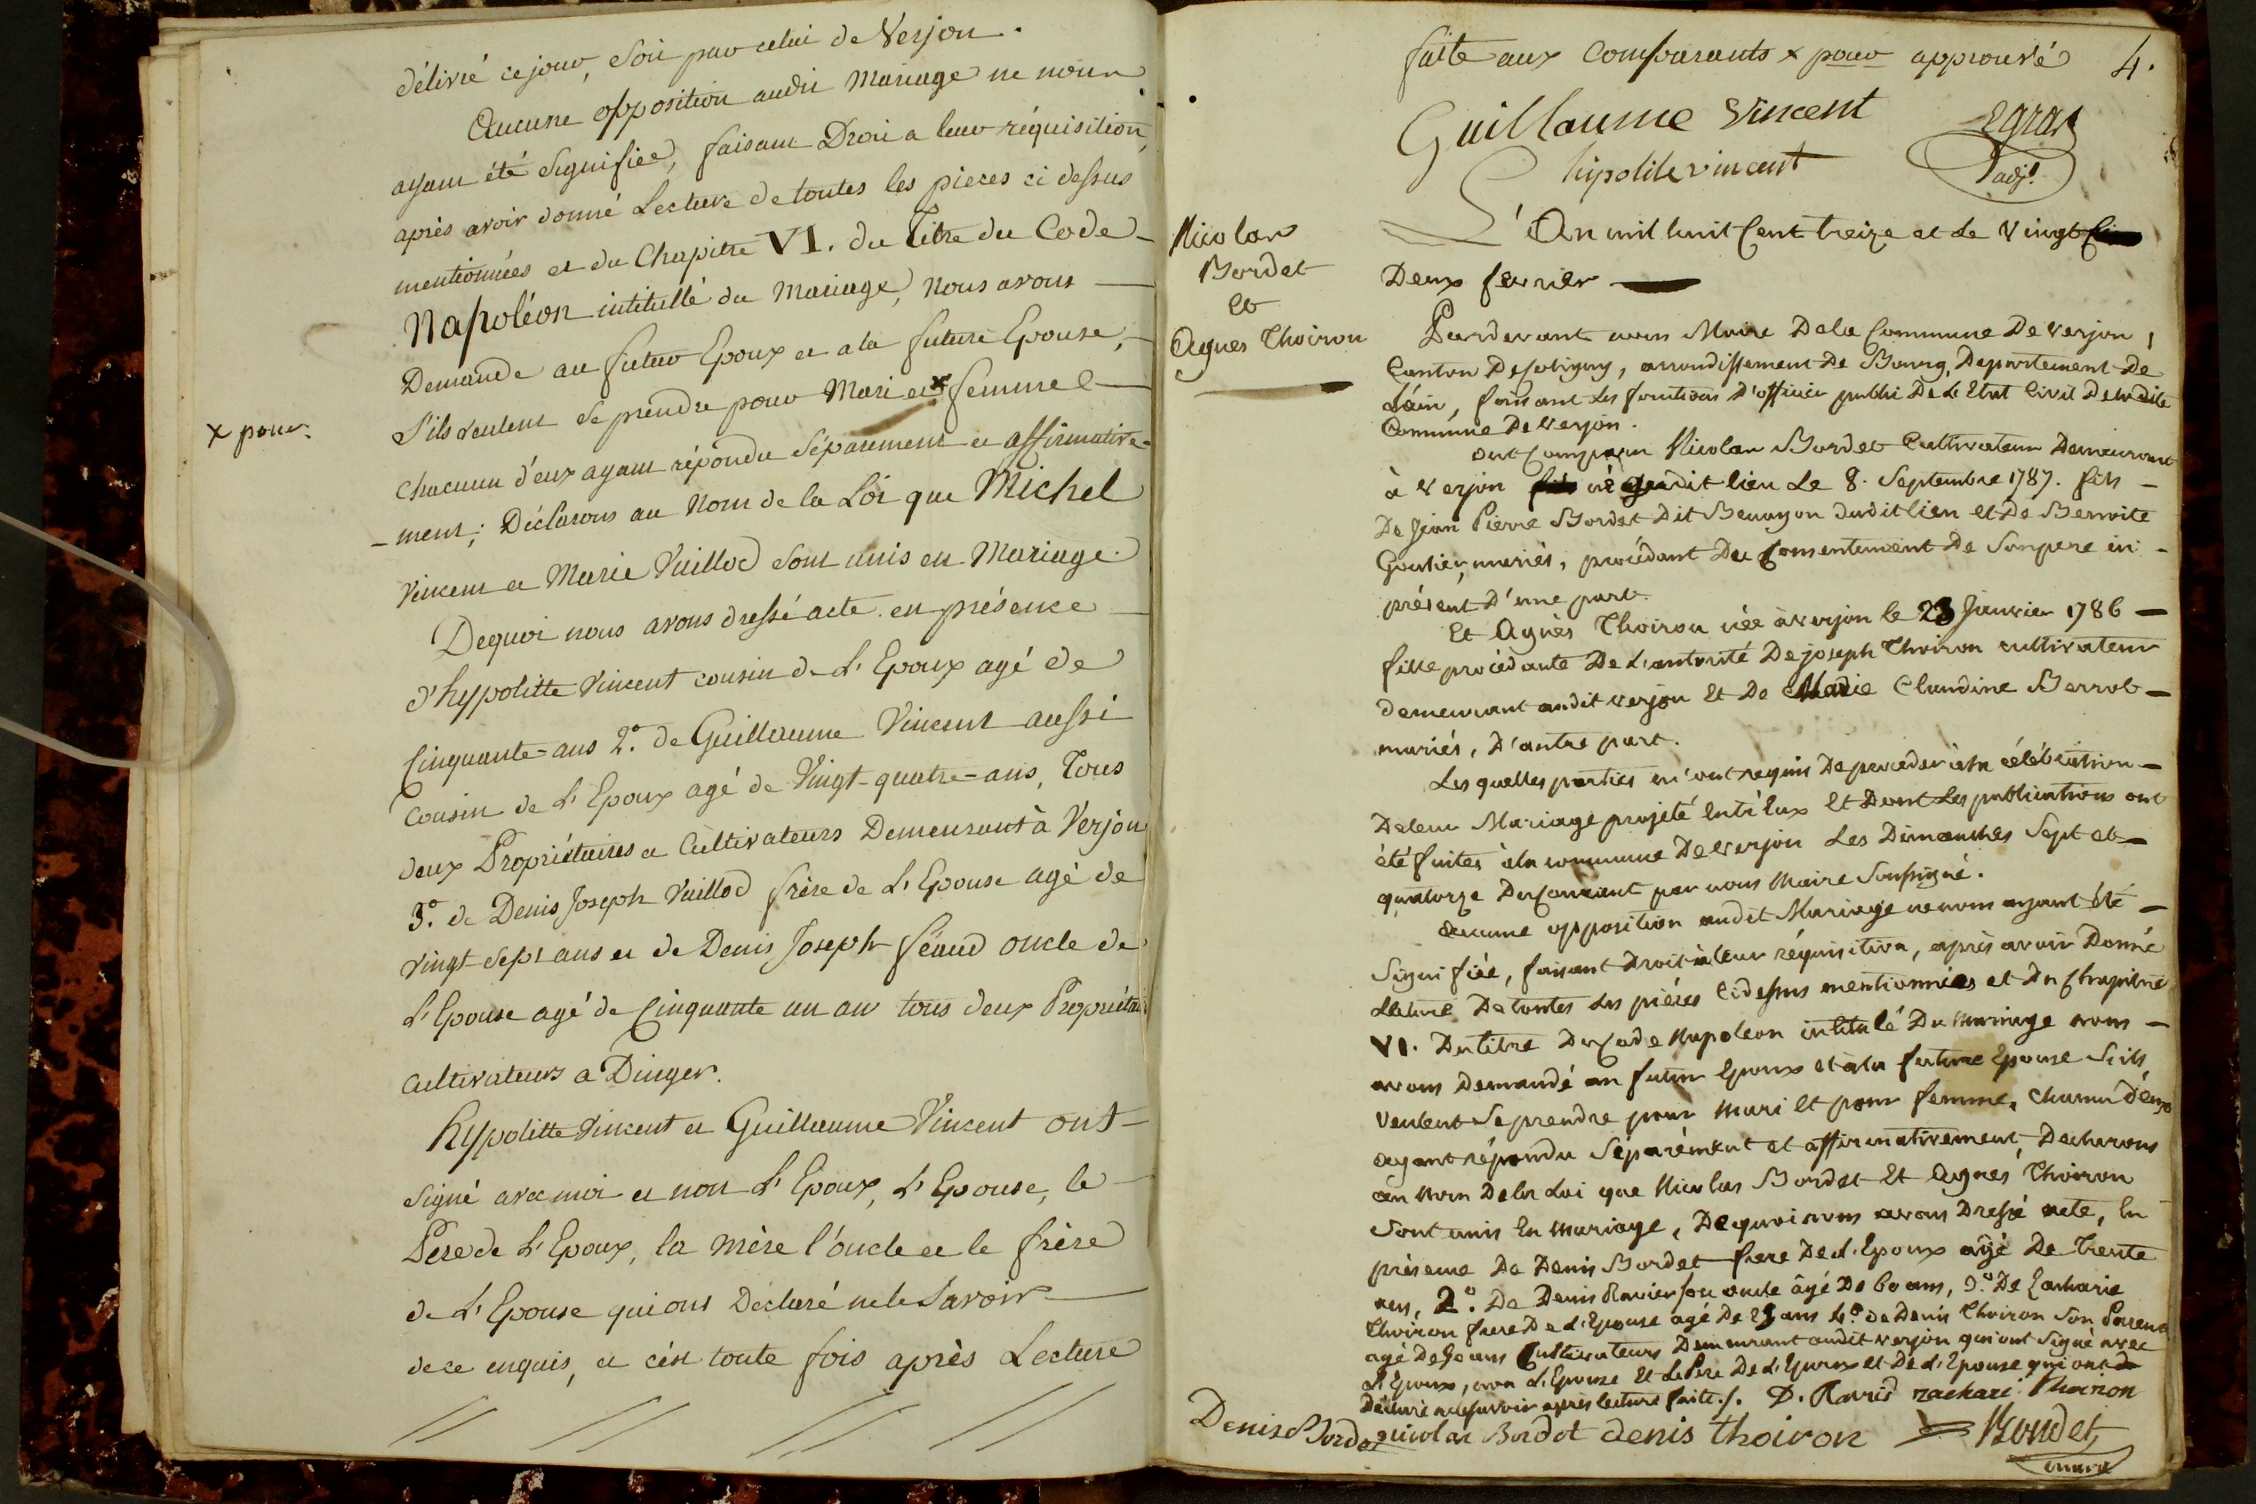 délivré ce jour, soit par celui de Verjon.
Aucune opposition audit Mariage ne nous
ayant été signifiée, faisant Droit a leur réquisition,
après avoir donné Lecture de toutes les pieces ci dessus
mentionnées et du Chapitre VI. du Titre du Code
Napoléon intitullé du Mariage, Nous avons
Demandé au futur Epoux et a la future Epouse,
S'ils veulent se prendre pour Mari et x femme
x pour
chacun d'eux ayant répondu séparement et affirmative-
-ment; Déclarons au Nom de la Loi que Michel
Vincent et Marie Vuillod sont unis en Mariage.
Dequoi nous avons dressé acte en présence
d'hypolitte Vincent cousin de L'Epoux agé de
Cinquante-ans 2.° de Guillaume Vincent aussi
Cousin de L'Epoux agé de Vingt-quatre-ans, Tous
deux Propriétaires et Cultivateurs Demeurant à Verjon
3.° de Denis Joseph Vuillod frère de L'Epouse agé de
vingt-sept ans et de Denis Joseph Féaud oncle de
L'Epouse agé de Cinquante un an tous deux Propriétai
cultivateurs a Dingier.
hypolitte Vincent et Guillaume Vincent ont
signé avec moi et non L'Epoux, L'Epouse, le
Père de L'Epoux, la Mère l'oncle et le frère
de L'Epouse qui ont Déclaré ne le Savoir
de ce enquis, et c'est toute fois après Lecture
faite aux Comparants x pour approuvé 4.
Guillaume Vincent
hipolite vincent
adj.t
Nicolas
Bordet
et
Agnes Thoiron
L'An mil huit Cent treize et Le Vingt
Deux fevrier
Pardevant nous Maire De la Commune De Verjon,
Canton De Coligny, arrondissement De Bourg, Departement De
L'ain, faisant Les fonctions D'officier public De L'Etat Civil De ladite
Commune De verjon.
ont Comparu Nicolas Bordet Cultivateur Demeurant
à Verjon né audit lieu Le 8. Septembre 1787. fils
De Jean Pierre Bordet Dit dudit lieu et De Benoite
Goutier, mariés, procédant Du Consentement De Son pere ici
présent D'une part.
Et Agnès Thoiron née à verjon le 23 Janvier 1786
fille procédante De L'autorité De joseph Thoiron cultivateur
demeurant audit verjon Et De Marie Claudine
mariés, D'autre part.
Les quelles parties m'ont requis De proceder à la célébration
De leur Mariage projeté Entr'Eux Et Dont Les publications ont
été faites à la commune De verjon Les Dimanches Sept et
quatorze Du Courant par nous Maire Soussigné.
aucune opposition audit Mariage ne nous ayant été
Signifiée, faisant Droit à leur réquisition, après avoir Donné
Lecture De toutes Les pièces Cidessus mentionnées et Du Chapitre
VI. Du titre Du Code Napoleon intitulé Du Mariage nous
avons Demandé au futur Epoux et à la future Epouse S'ils
Veulent Se prendre pour Mari Et pour femme, chacun D'eux
ayant répondu Séparément et affirmativement, Declarons
au Nom De la Loi que Nicolas Bordet Et Agnes Thoiron
Sont unis En Mariage, De quoi nous avons Dressé acte, En
présence De Denis Bordet frere De L'Epoux agé De trente
ans, 2.° De Denis Ravier son oncle âgé De 60 ans, 3.° De Zacharie
Thoiron frere De L'Epouse agé De ans 4.° de Denis Thoiron Son Parent
agé De ans Cultivateurs Demeurant audit verjon qui ont Signé avec
L'Epoux, non L'Epouse Et Le Pere De L'Epoux et De L'Epouse qui ont
Déclaré ne Savoir après lecture faite./. D. Zachari Thoiron
Denis Bordet nicolas Bordet denis thoiron
maire